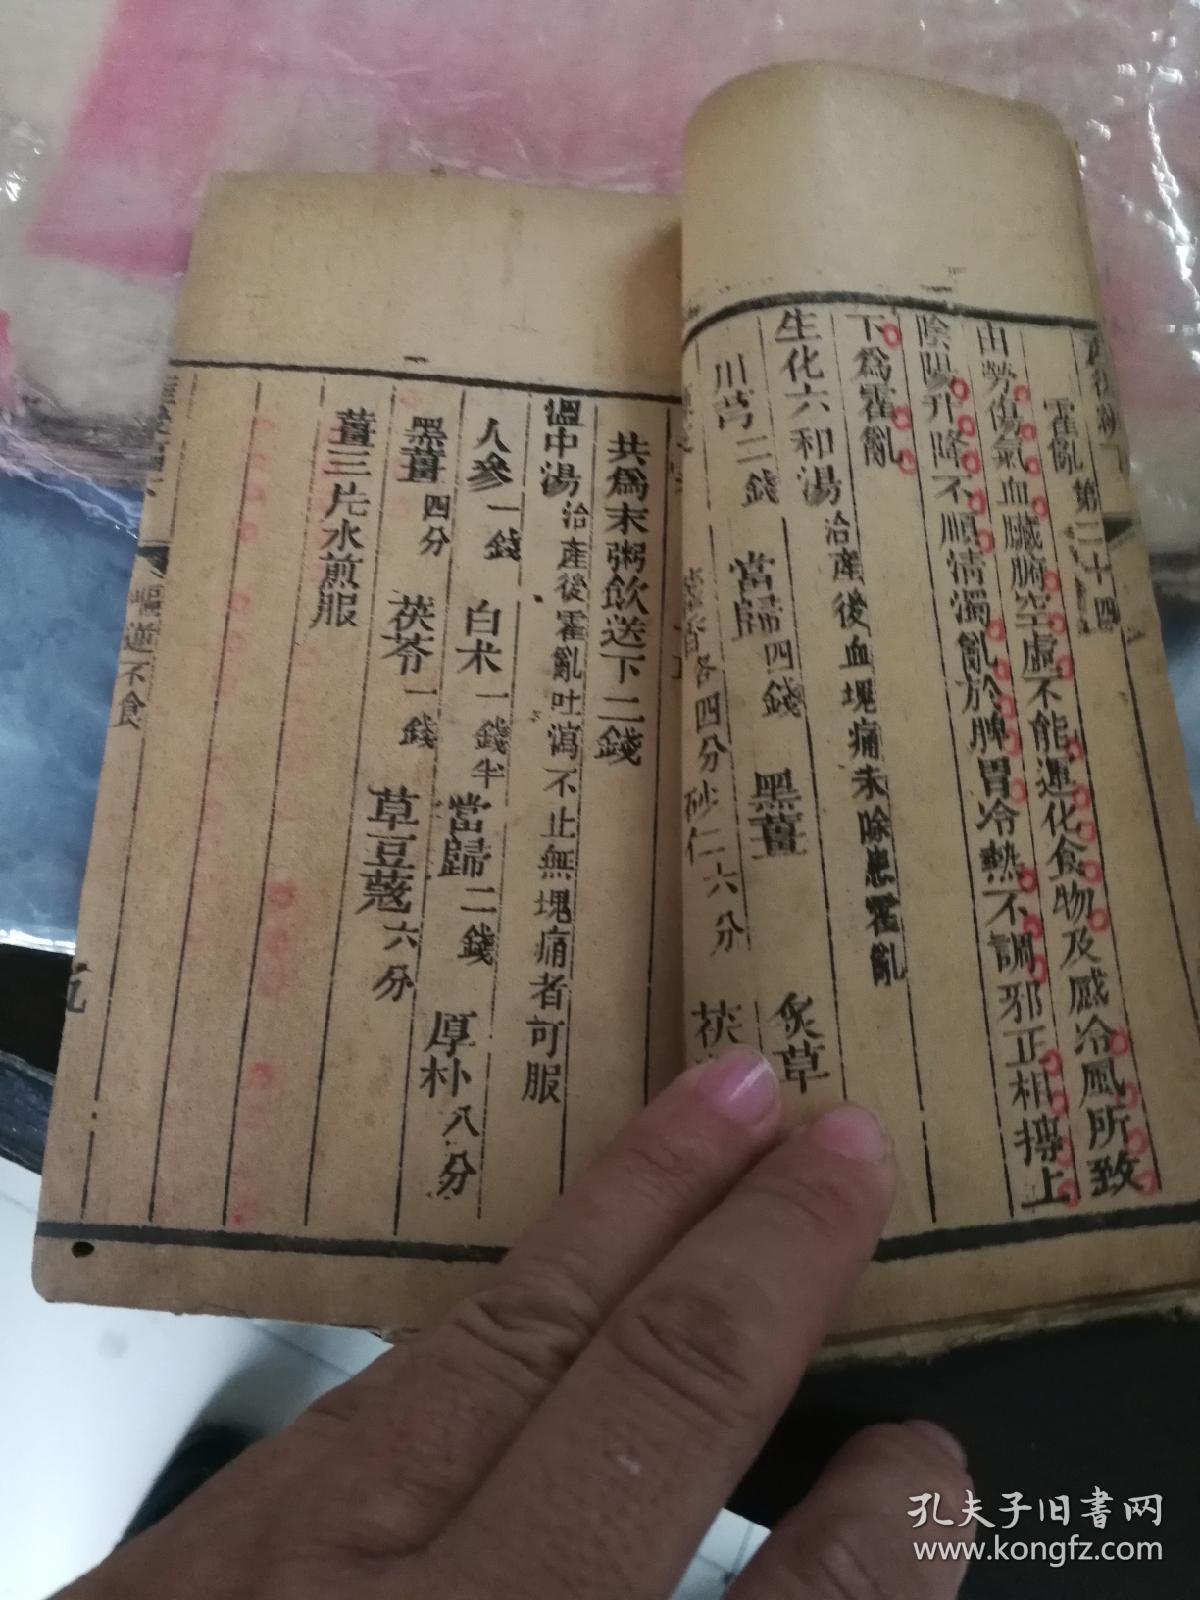 霍亂第二十四
由勞傷氣血臟腑空虛不能運化食物及感冷風所致
陰陽升降不順清濁亂於脾胃冷熱不調邪正相搏上
下爲霍亂
生化六和湯治產後血塊痛未除患霍亂
川芎二錢 當歸四錢 黑薑 炙草
各四分 砂仁六分 茯
共爲末粥飲送下二錢
溫中湯治產後霍亂吐瀉不止無塊痛者可服
人參一錢 白朮一錢半 當歸二錢 厚朴八分
黑薑四分 茯苓一錢 草豆蔻六分
薑三片水煎服
逆不食
九
孔夫子旧書网
www.kongfz.com